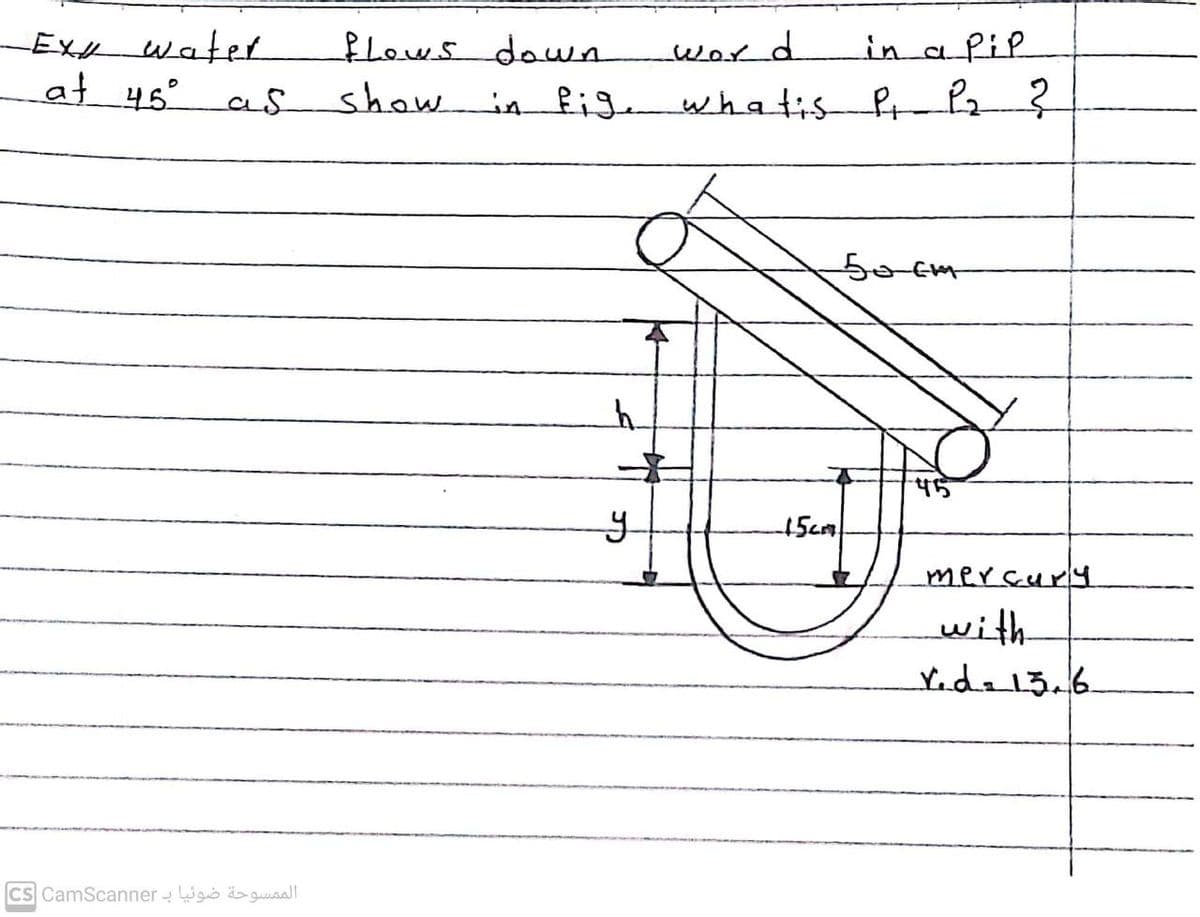 Ex// water flows down wor d in a pip
at 45° as show in fig. what is P₁ - P₂ ?
50 cm
h
45
y
15cm
mercury
with
r.d = 13.6
CS CamScanner الممسوحة ضوئيا بـ